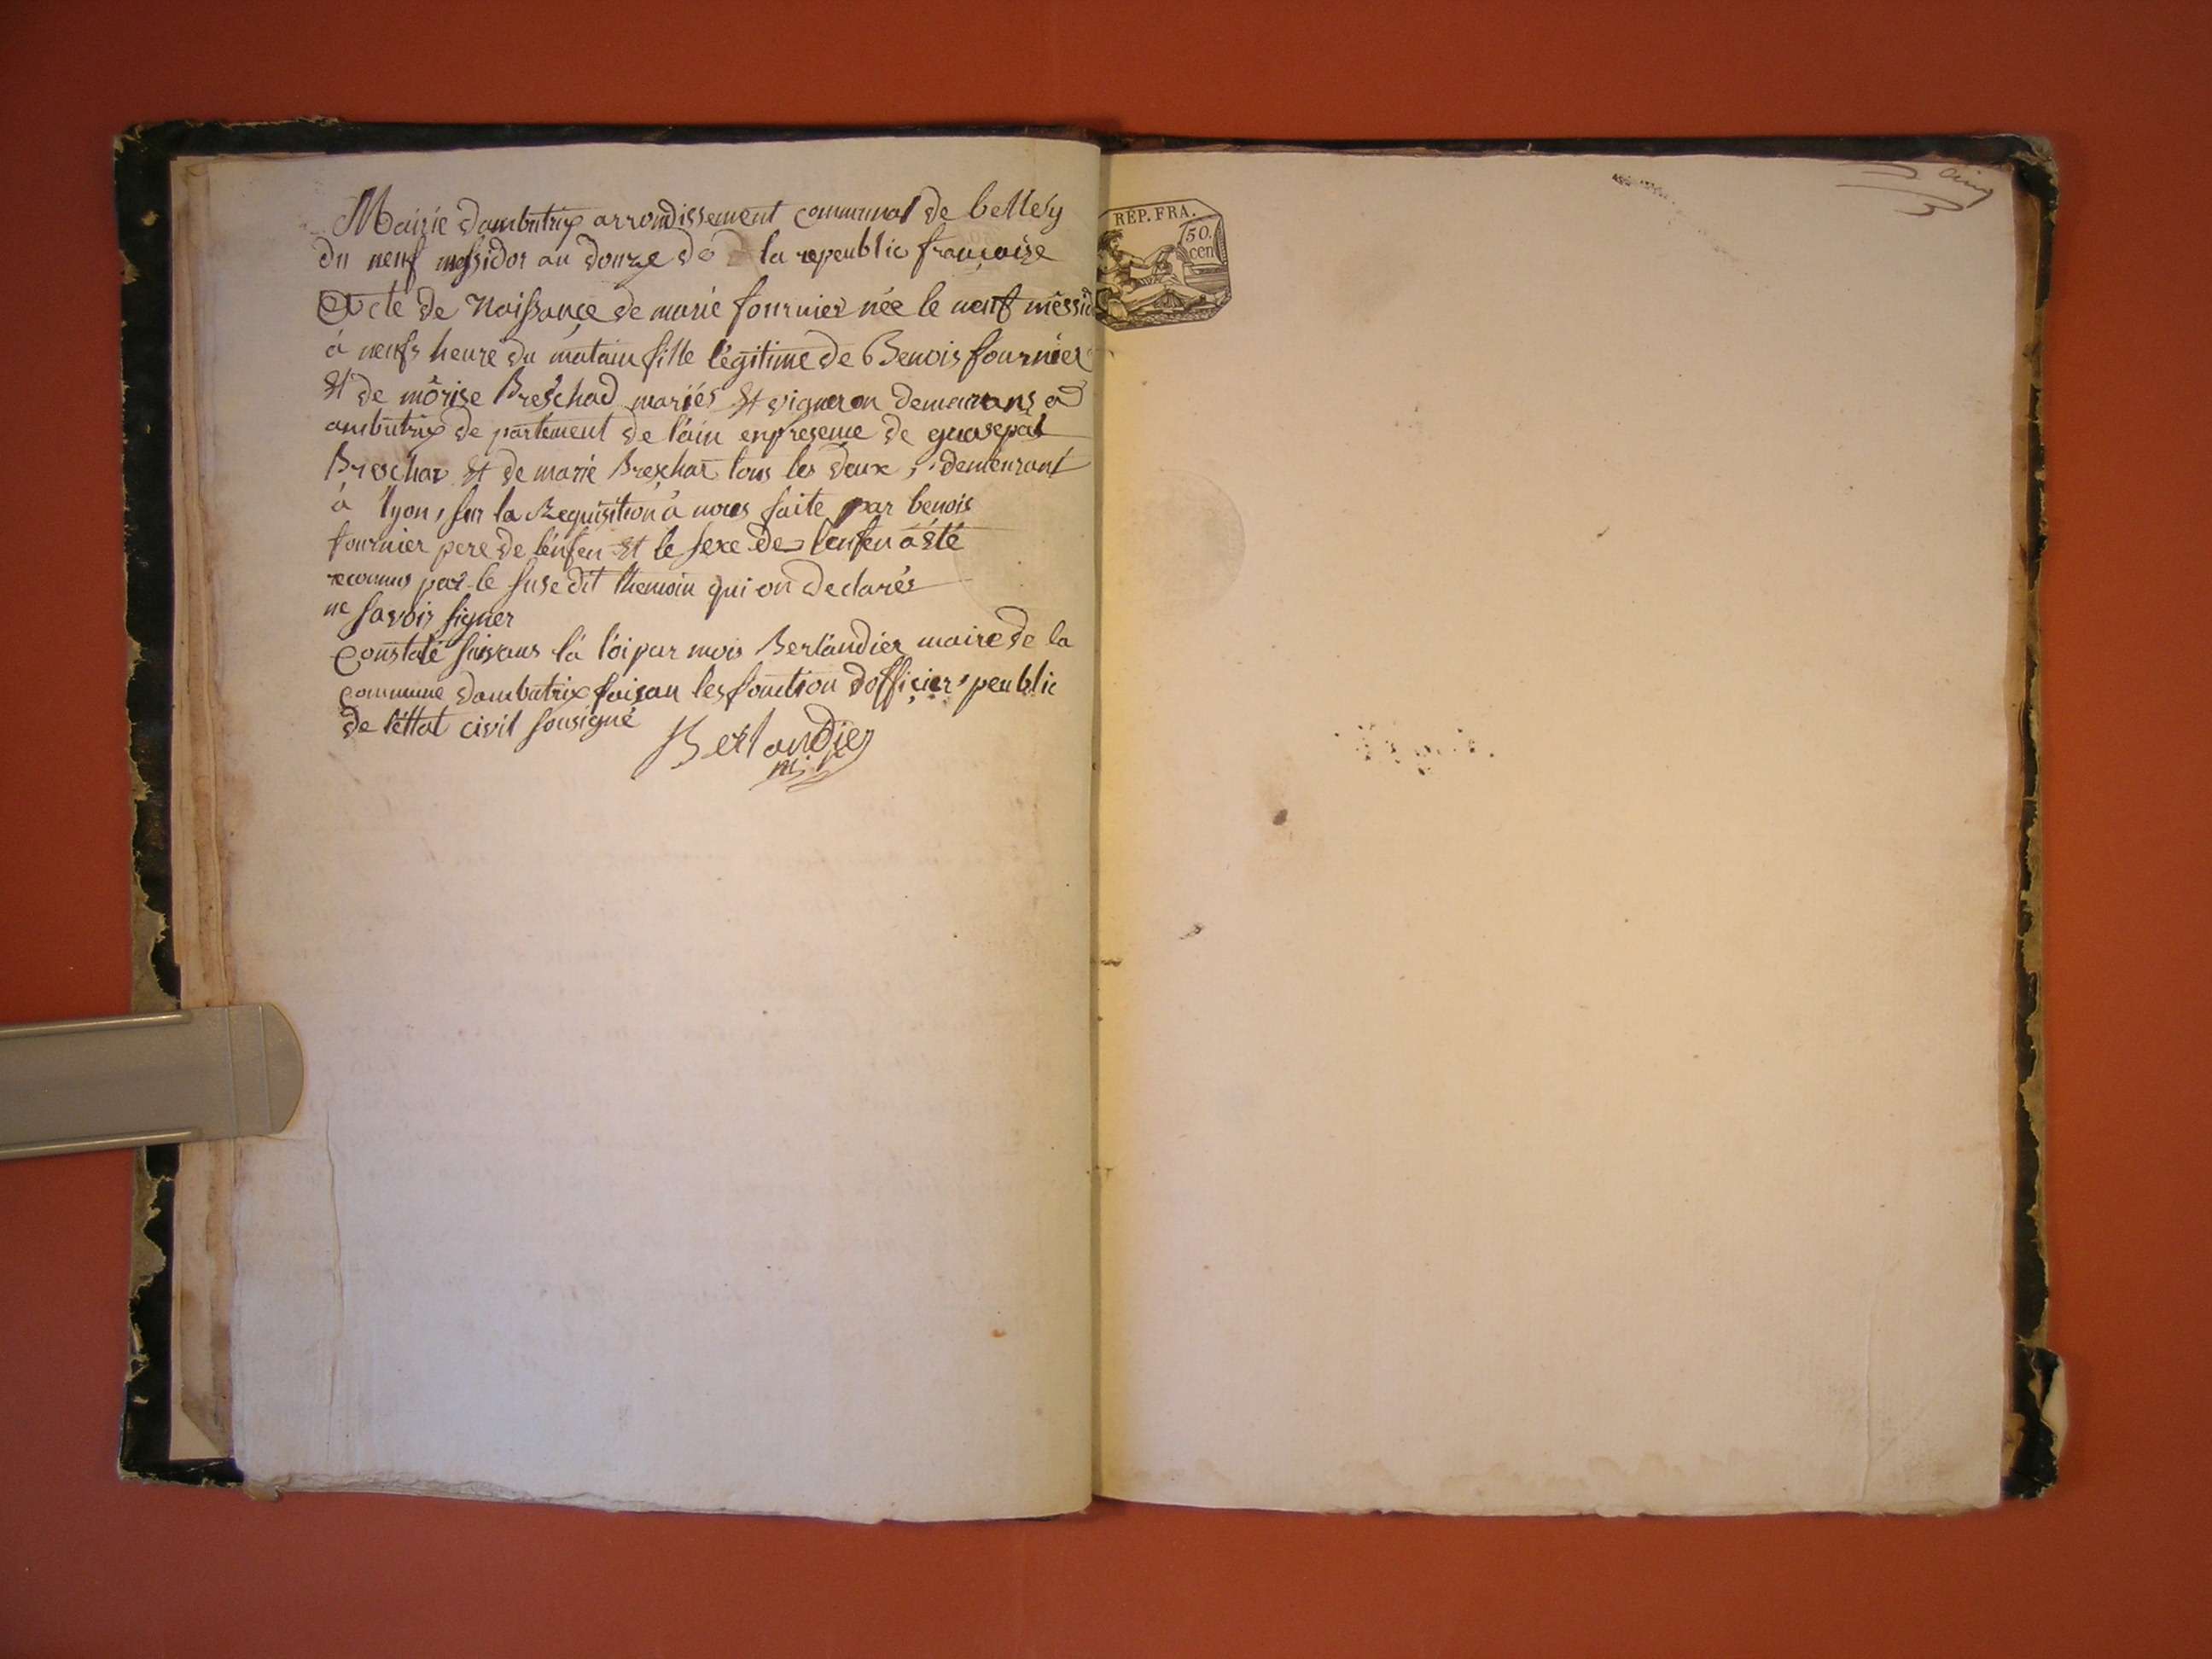 Mairie dambutrix arrondissement communal de belley
du neuf messidor an douze de la repeublic françoise
Acte de Naissançe de marie fournier née le neuf mêssid
à neufs heure du matain fille légitime de Benois fournier
Et de môrise Breschad mariés Et vigneron demeurans à
ambutrix de partement de l'ain enpresence de
Breschar Et de marie Breschar tous les deux, demeurant
à lyon, sur la Requisition à nous faite par benois
fournier pere de lénfen Et le sexe de lenfen à été
reconnus par le suse dit themoin qui on declarés
ne savoir signer
Constaté suivans la loi par mois Berlandier maire de la
commune dambutrix faisan les fonction dofficier peublic
de léttat civil sousigné
Berlandier
RÉP. FRA.
50.
cen